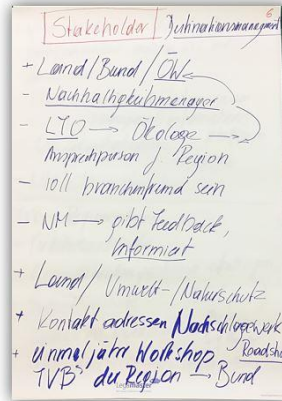 6
Stakeholder | Destinationsmanagement
+ Land/Bund/ÖW
- Nachhaltigkeitsmanager
- LTO → Ökologe →
Ansprechperson f. Region
- soll branchenfremd sein
- NM → gibt Feedback,
informiert
+ Land/Umwelt-/Naturschutz
+ Kontaktadressen/Nachschlagewerk
+ einmal jährl Workshop Roadsh
TVB's der Region → Bund
Legamaster